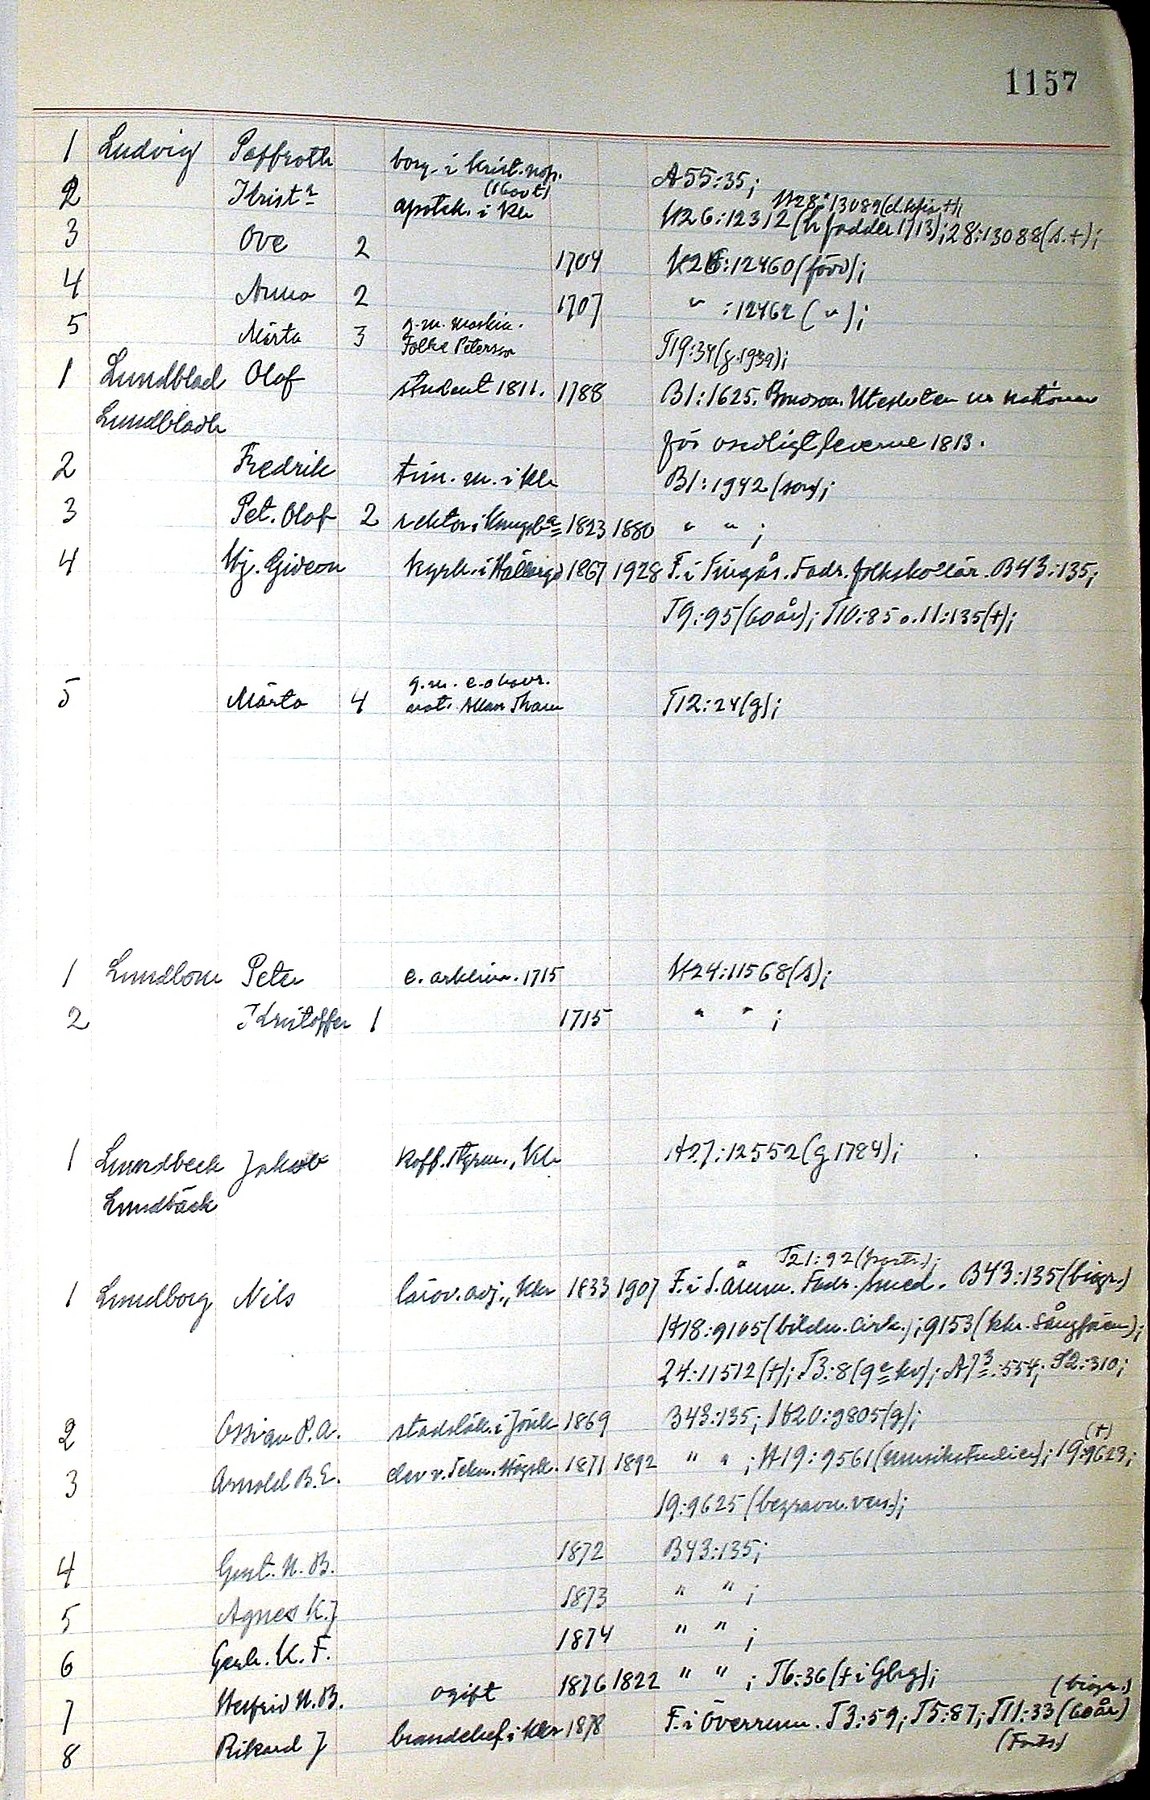 1157
1 Ludvig Paffroth borg. i Krist.nop. A55:35;
2 Krist apotek. i Kla H26:12312 (h fadder 1713); 28:13088 (s. +);
3 Ove 2 1704 H26:12460 (förs);
4 Anna 2 1707 " :12462 ( " );
5 Märta 3 g.m. maskin. Folke Peterson T19:34 (g. 1939);
1 Lundblad Olof student 1811. 1788 B1:1625. Utesluten ur nationen
Lundbladh för osedligt leverne 1813.
2 Fredrik tim. m. i Kla B1:1942 (son);
3 Pet. Olof 2 rektor i Kungsb 1823 1880 " " ;
4 Hj. Gideon kyrk. i 1867 1928 F. i Tingås. Fadr. folkskollär. B43:135;
T9:95 (60 år); T10:85 o. 11:135 (+);
5 Märta 4 g.m. e.o hovr. not. Allan Tham T12:24 (g);
1 Lundbom Peter 1715 H24:11568 (s);
2 Kristoffer 1 1715 " " ;
1 Lundbeck Jakob koff. styrm., Kla H27:12552 (g 1784);
Lundbäck
T21:92
1 Lundborg Nils lärov. adj., Klr 1833 1907 F. i S. Årum. Fadr. smed. B43:135 (biogr.)
H18:9105 (bildn. Cirk.); 9153 (klr. Sångfören);
24:11512 (+); T3:8 ; A7:554; T2:310;
2 Ossian P. A. stadsläk. i Jönk 1869 B43:135; H20:9805 (g);
3 Arnold B. E. elev v. Tekn. Högsk. 1871 1892 " " ; H19:9561 (musikstudier); 19:9623; (+)
19:9625 (begravn. vers.);
4 Gust. N. B. 1872 B43:135;
5 Agnes K. J 1873 " " ;
6 K. F. 1874 " " ;
7 Hesfrid N. B. ogift 1876 1822 " " ; T6:36 (+ i Gbg);
8 Rikard J brandchef i Klr 1878 F. i Överrum. T3:59; T5:87; T11:33 (60 år) (biogr.)
(Forts.)